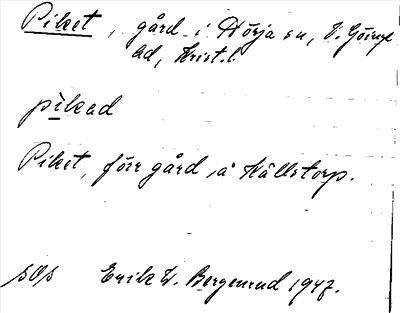 Piket, gård i Hörja sn, V. Göinge
hd, Krist. l.
pikad
Piket, förr gård å Källstorp.
SOS Erik W. Bergenrud 1947.